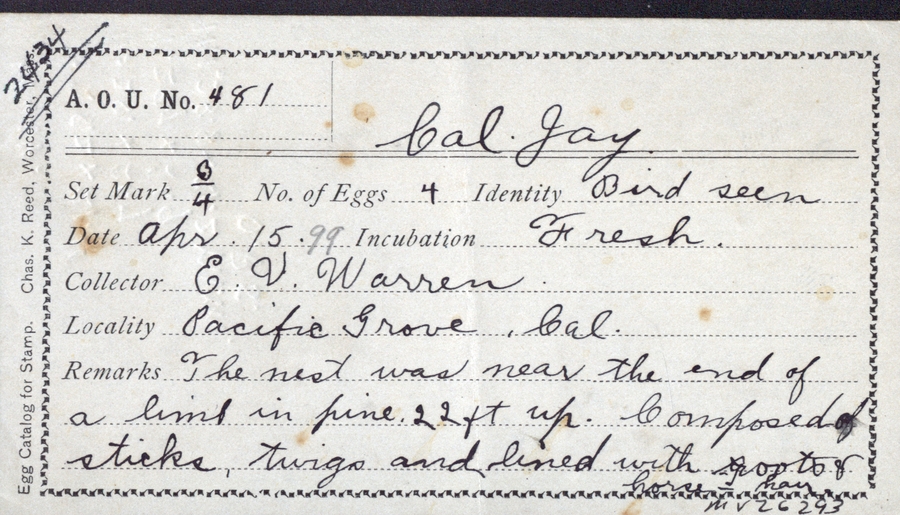 A. O. U. No. 481
Cal. Jay.
Set Mark 3/4 No. of Eggs 4 Identity Bird seen
Date Apr. 15. 99 Incubation Fresh.
Collector E. V. Warren
Locality Pacific Grove, Cal.
Remarks The nest was near the end of
a limb in pine. 22 ft up. Composed of
sticks, twigs and lined with roots &
horse-hair
MV26293
Egg Catalog for Stamp. Chas. K. Reed, Worcester, Mass.